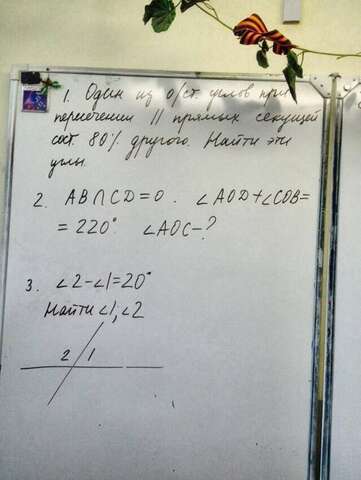 1. Один из о/ст. углов при
пересечении || прямых секущей
сост. 80% другого. Найти эти
углы.
2. AB∩CD=O. ∠AOD+∠COB=
=220°. ∠AOC-?
3. ∠2-∠1=20°
Найти ∠1,∠2
2 1